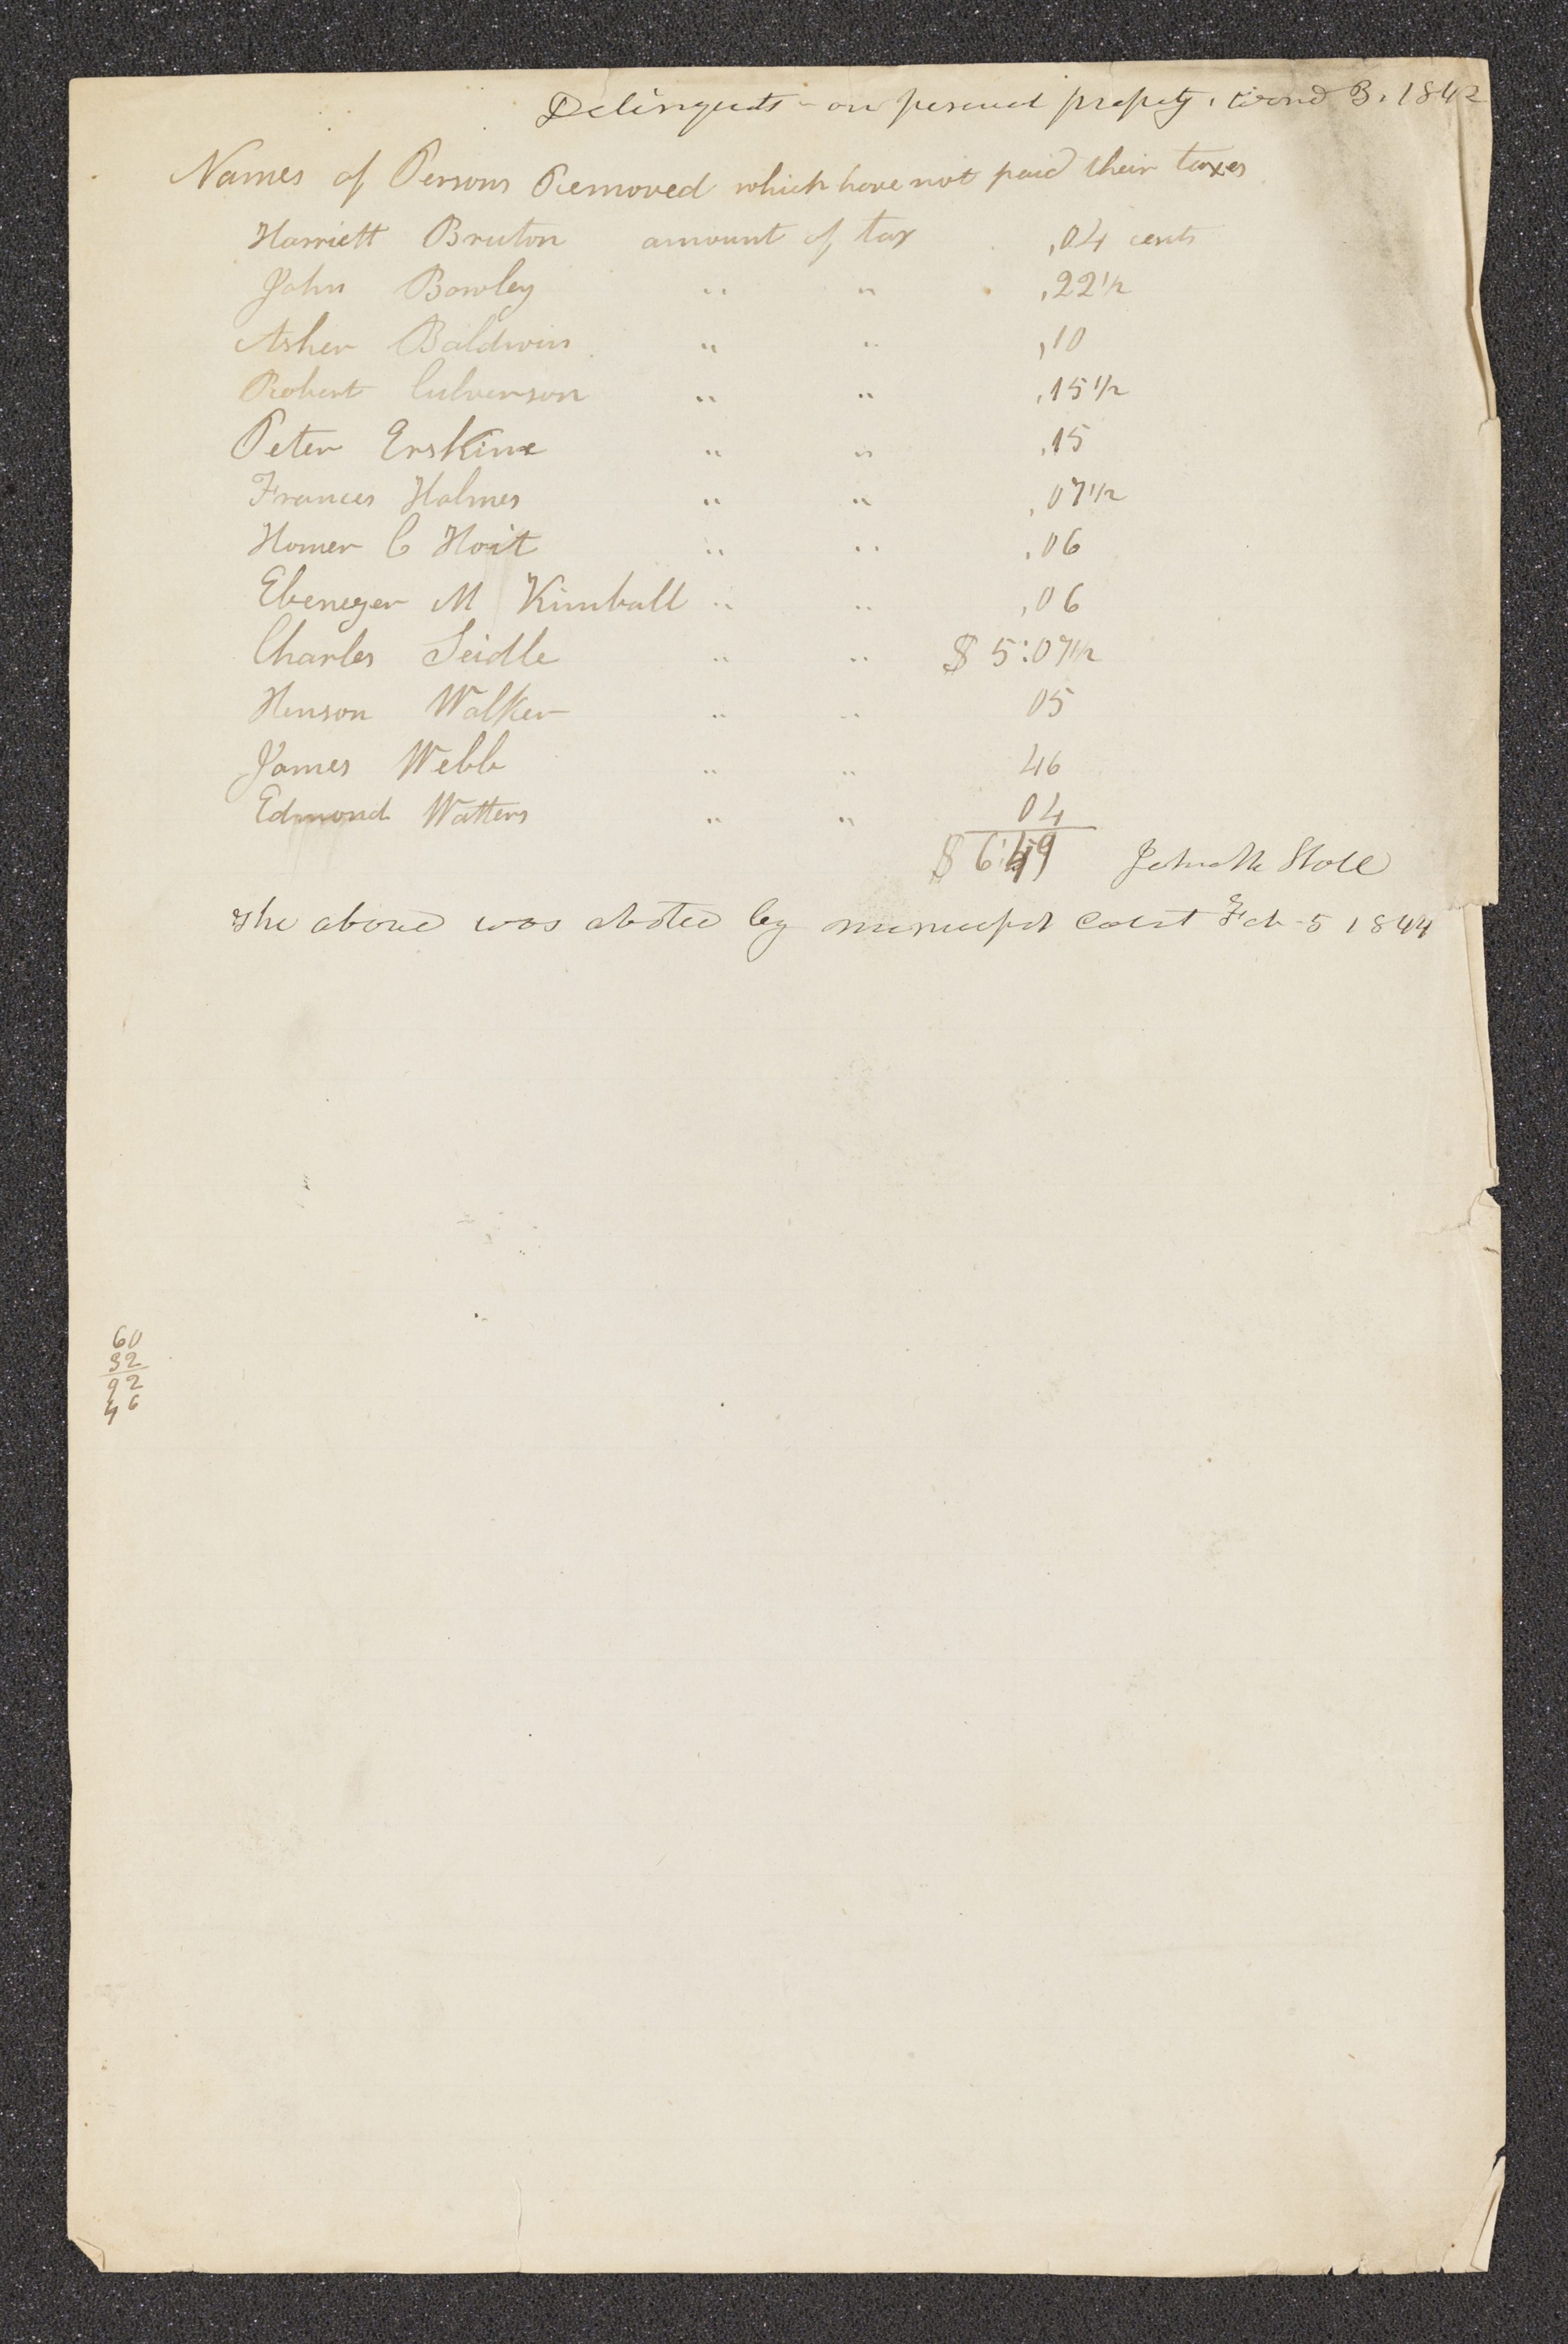 Delinquets - on personel propety. Ward 3. 1842
Names of Persons Removed which have not paid their taxes
Harriett Bruton amount of tax ,04 cents
John Bowley " " ,22 1/2
Asher Baldwin " " ,10
Robert Culverson " " ,15 1/2
Peter Erskine " " ,15
Frances Holmes " " ,07 1/2
Homer C Hoit " " ,06
Ebenezer M Kimball " " ,06
Charles Seidle " " $ 5:07 1/2
Henson Walker " " 05
James Webb " " 46
Edmond Watters " " 04
$ 6:49 Stoll
The above was abated by municipal Court Feb 5 1844
60
32
92
46